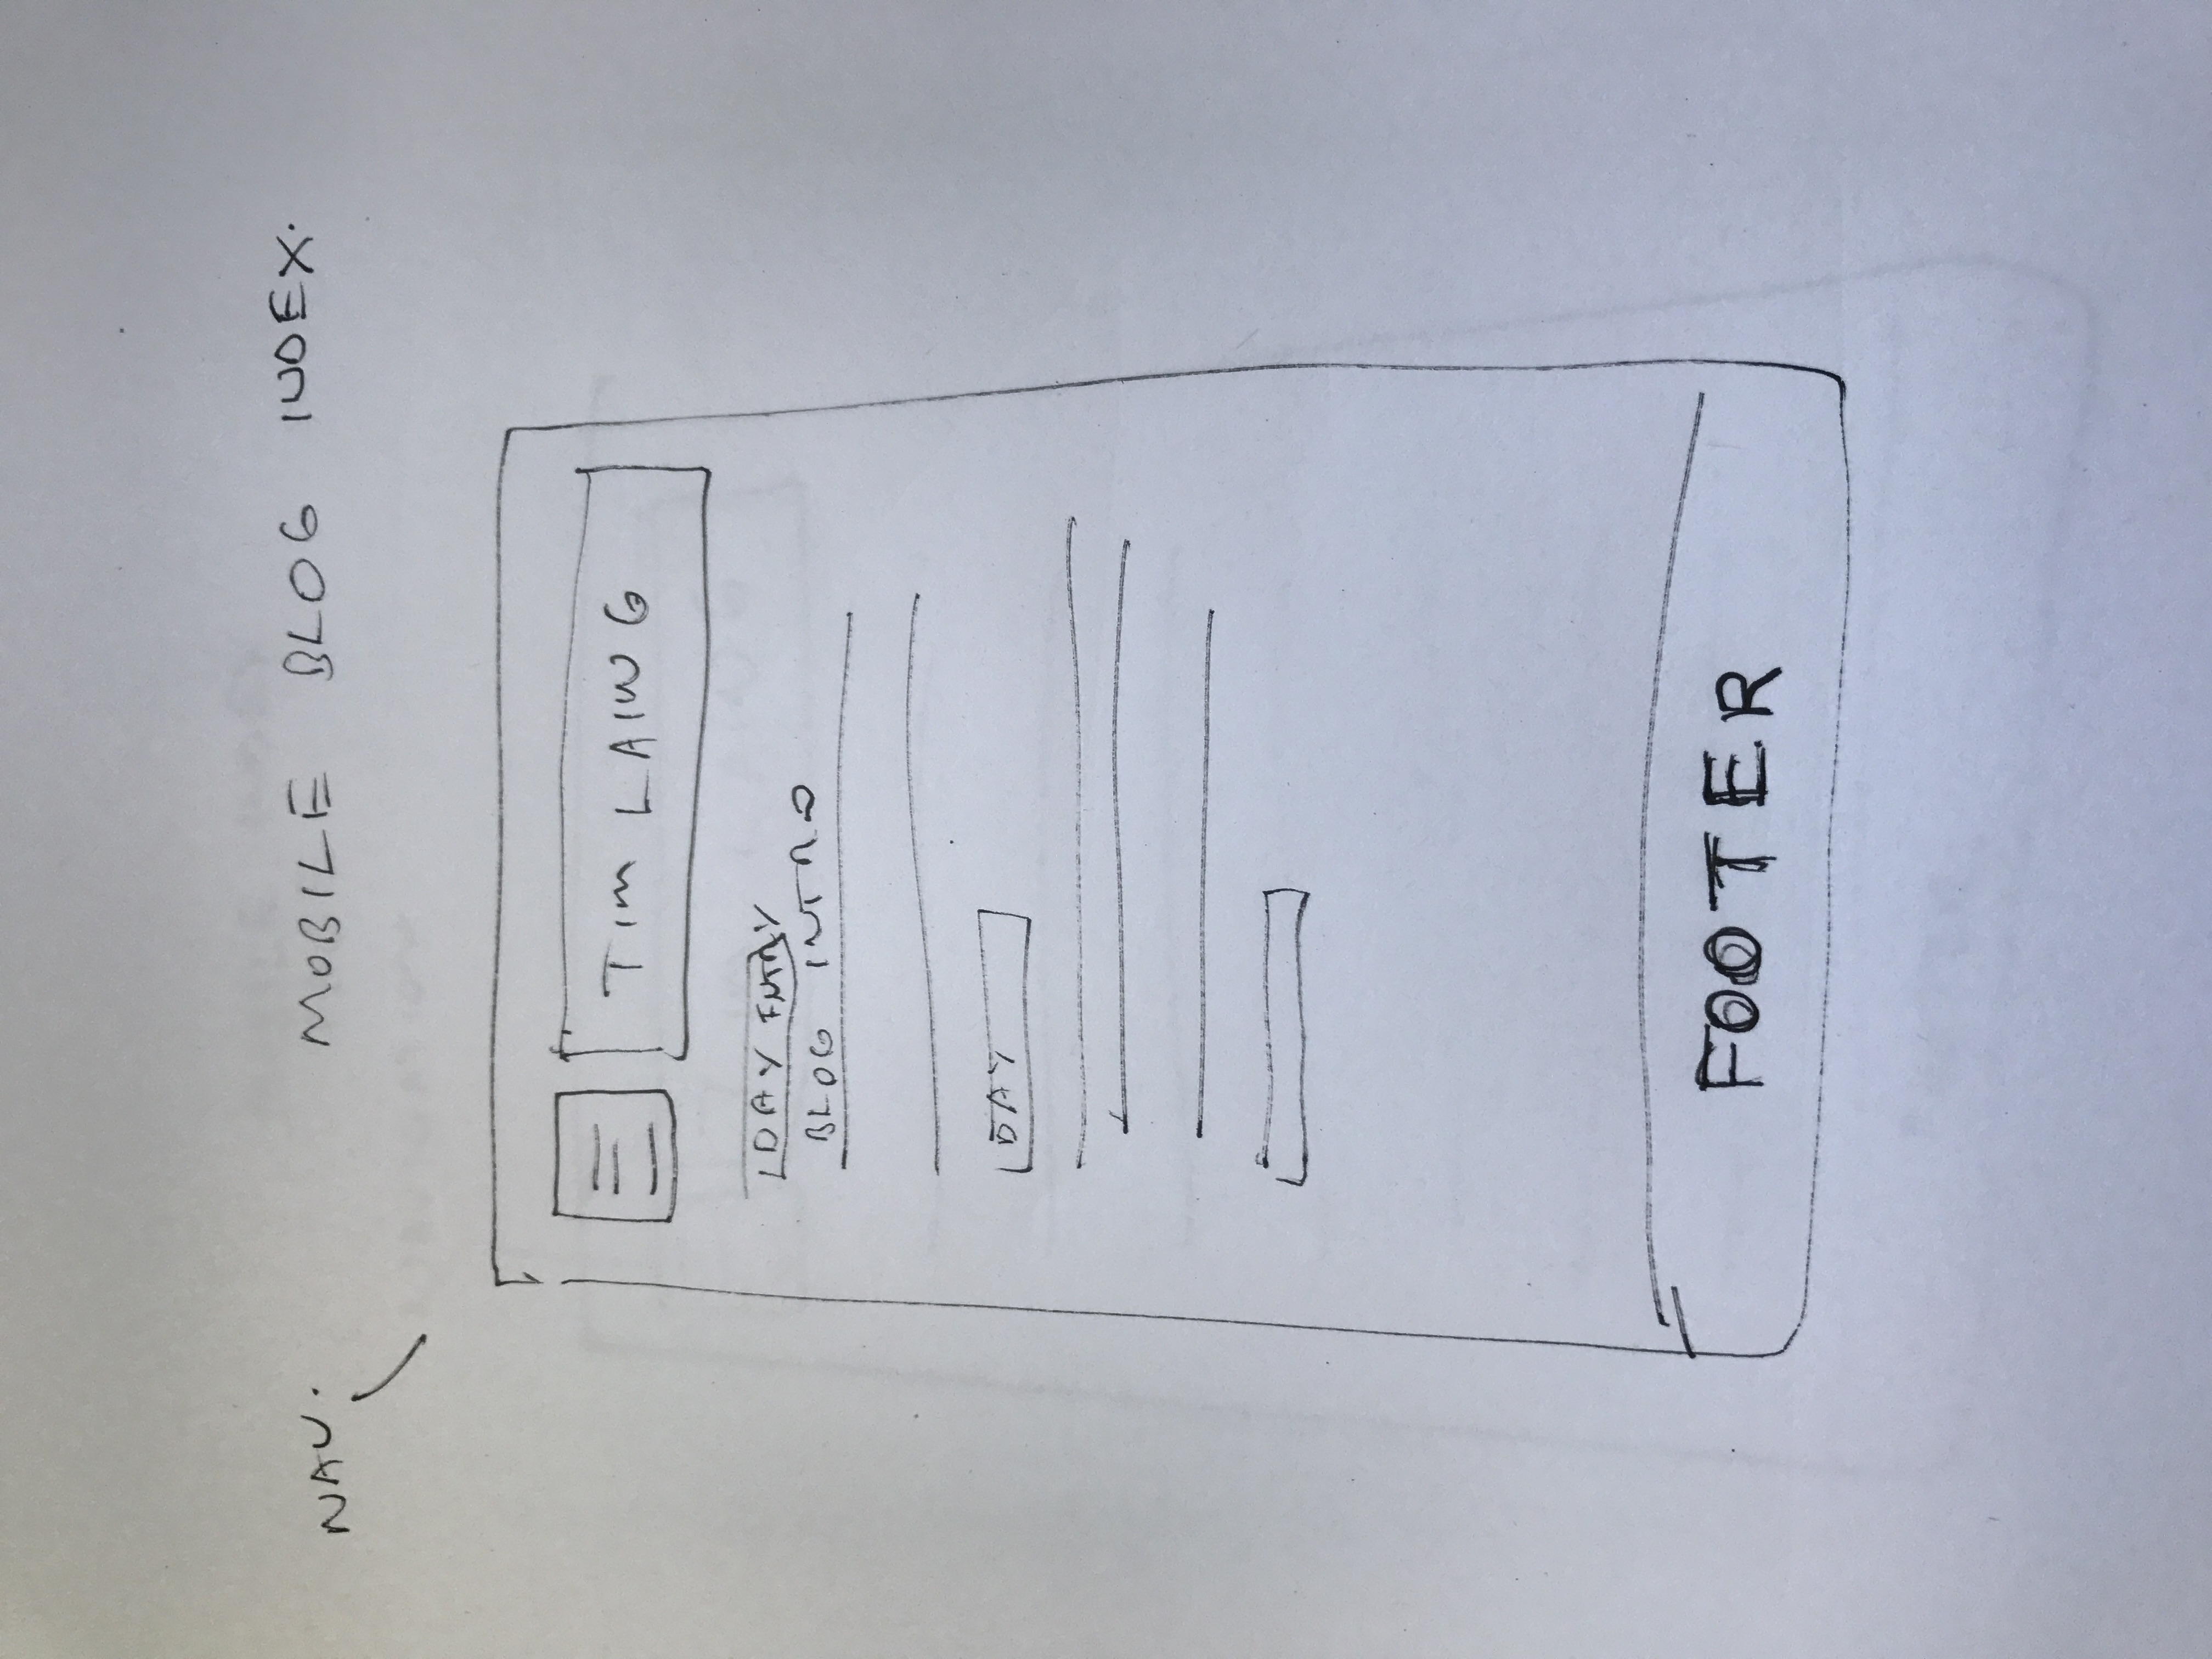 NAV.
MOBILE BLOG INDEX.
TIM LAING
DAY ENTRY
BLOG INTRO
DAY
FOOTER